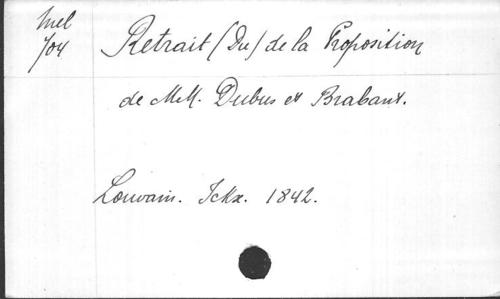 Mel
704
Retrait (Du) de la Proposition
de MM. Dubus et Brabant.
Louvain. Ickx. 1842.